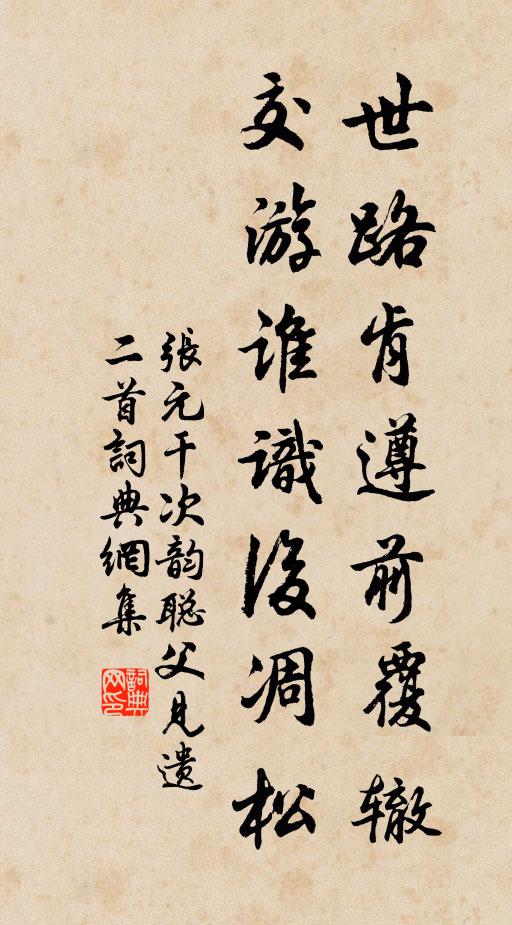 世路肯遵前覆辙
交游谁識後凋松
張元干次韵聪父見遗
二首詞典網集
詞典网印